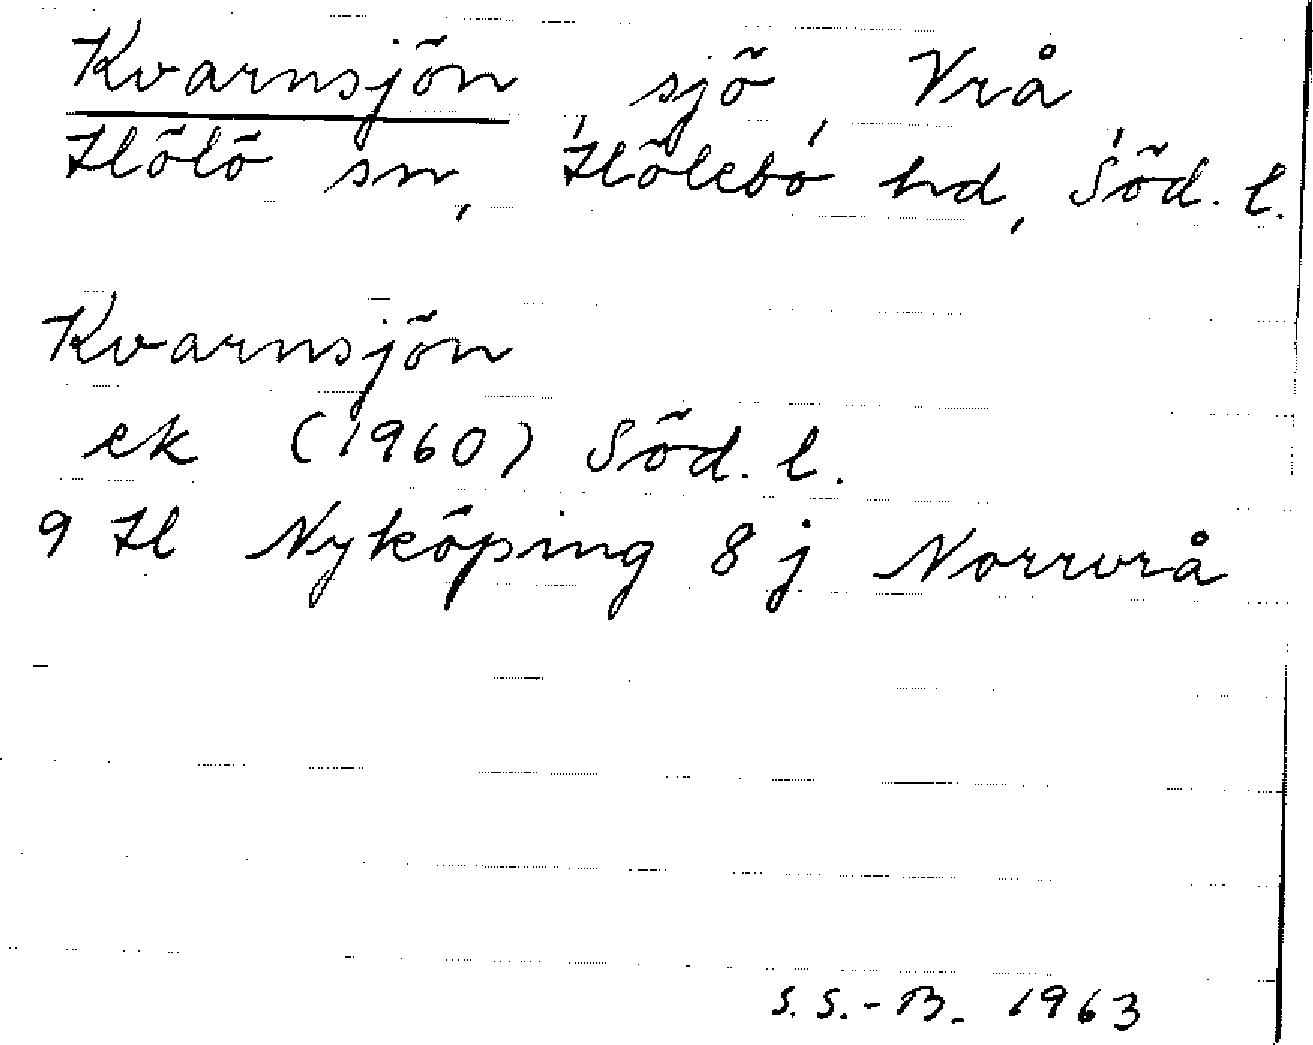 Kvarnsjön, sjö, Vrå,
Hölö sn, Hölebo hd, Söd. l.
Kvarnsjön
ek (1960) Söd. l.
9 H Nyköping 8 j Norrvrå
S. S.-B. 1963